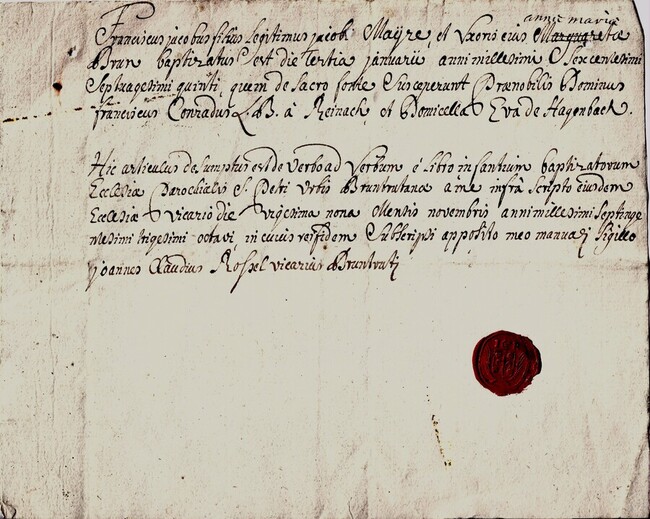 anna maria
Franciscus jacobus filius Legitimus jacobi Mayre, et Uxoris eius Margaretæ
Brun baptizatus est die Tertia januarii anni millesimi Sexcentesimi
Septuagesimi quinti, quem de Sacro fonte Susceperunt Prænobilis Dominus
franciscus Conradus L. B. à Reinach, et Domicella Eva de Hagenbach.
Hic articulus desumptus est de Verbo ad Verbum é Libro infantium baptizatorum
Ecclesiæ Parochialis S. Petri Urbis Bruntrutanæ a me infrà Scripto eiusdem
Ecclesiæ Vicario die Vigesima nona Mensis novembris anni millesimi Septinge
ntesimi trigesimi octavi, in cuius rei fidem Subscripsi appósito meo manuali Sigillo
joannes Claudius Rossel vicarius Bruntruti